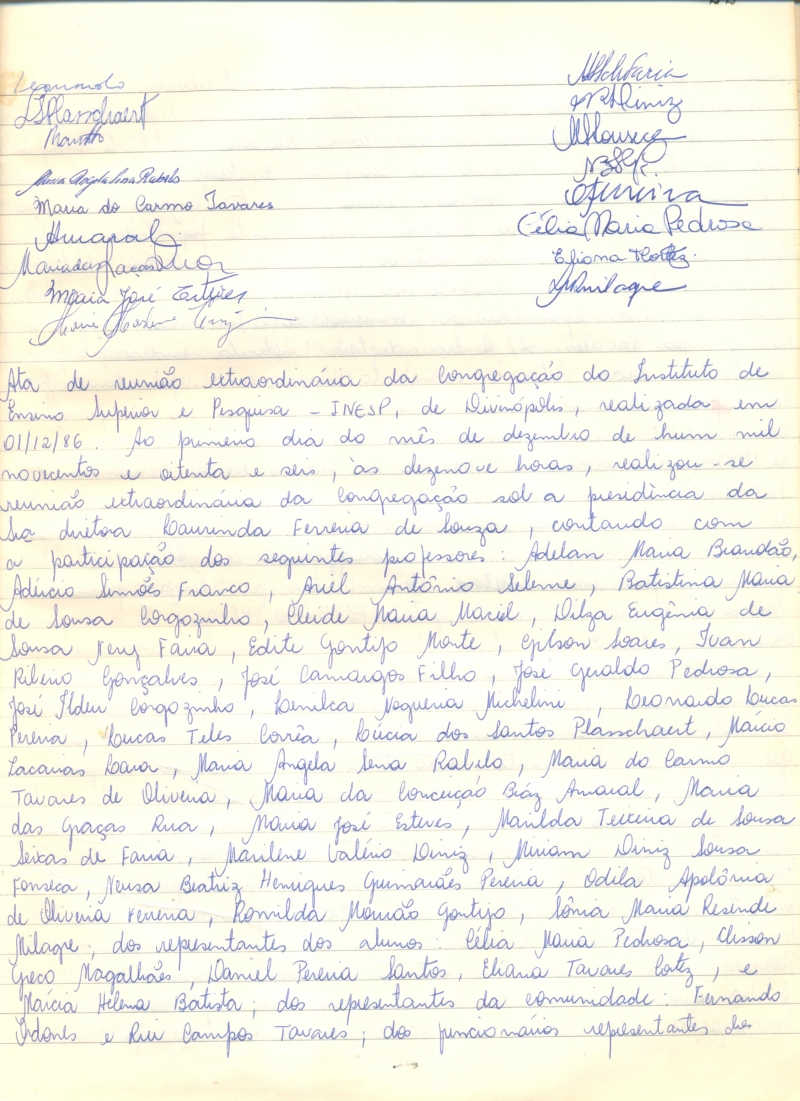 Leonardo
LSPlasschaert
Maria Angela Sena Rabelo
Maria do Carmo Tavares
Amaral
Maria das Graças Rua
Maria José Esteves
MSchFaria
MVDiniz
MFonseca
OFerreira
Célia Maria Pedrosa
Eliana Cortez
SMilagre
Ata de reunião extraordinária da Congregação do Instituto de
Ensino Superior e Pesquisa - INESP, de Divinópolis, realizada em
01/12/86. Ao primeiro dia do mês de dezembro de hum mil
novecentos e oitenta e seis, às dezenove horas, realizou-se
reunião extraordinária da Congregação sob a presidência da
Sra diretora Laurinda Ferreira de Souza, contando com
a participação dos seguintes professores: Adelan Maria Brandão,
Adércio Simões Franco, Ariel Antônio Seleme, Batistina Maria
de Sousa Corgozinho, Cleide Maria Maciel, Dilza Eugênia de
Sousa Nery Faria, Edite Gontijo Monte, Gylson Soares, Ivan
Ribeiro Gonçalves, José Camargos Filho, José Geraldo Pedrosa,
José Ilden Corgozinho, Lenilca Nogueira Michelini, Leonardo Lucas
Pereira, Lucas Teles Corrêa, Lúcia dos Santos Plasschaert, Márcio
Lacanas Lara, Maria Angela Sena Rabelo, Maria do Carmo
Tavares de Oliveira, Maria da Conceição Bráz Amaral, Maria
das Graças Rua, Maria José Esteves, Marilda Teixeira de Sousa
Seixas de Faria, Marilene Valério Diniz, Miriam Diniz Sousa
Fonseca, Neusa Beatriz Henriques Guimarães Pereira, Odila Apolônia
de Oliveira Ferreira, Romilda Mourão Gontijo, Sônia Maria Resende
Milagre; dos representantes dos alunos: Célia Maria Pedrosa, Clisson
Greco Magalhães, Daniel Pereira Santos, Eliana Tavares Cortez, e
Márcia Helena Batista; dos representantes da comunidade: Fernando
e Rui Campos Tavares; dos funcionários representantes dos